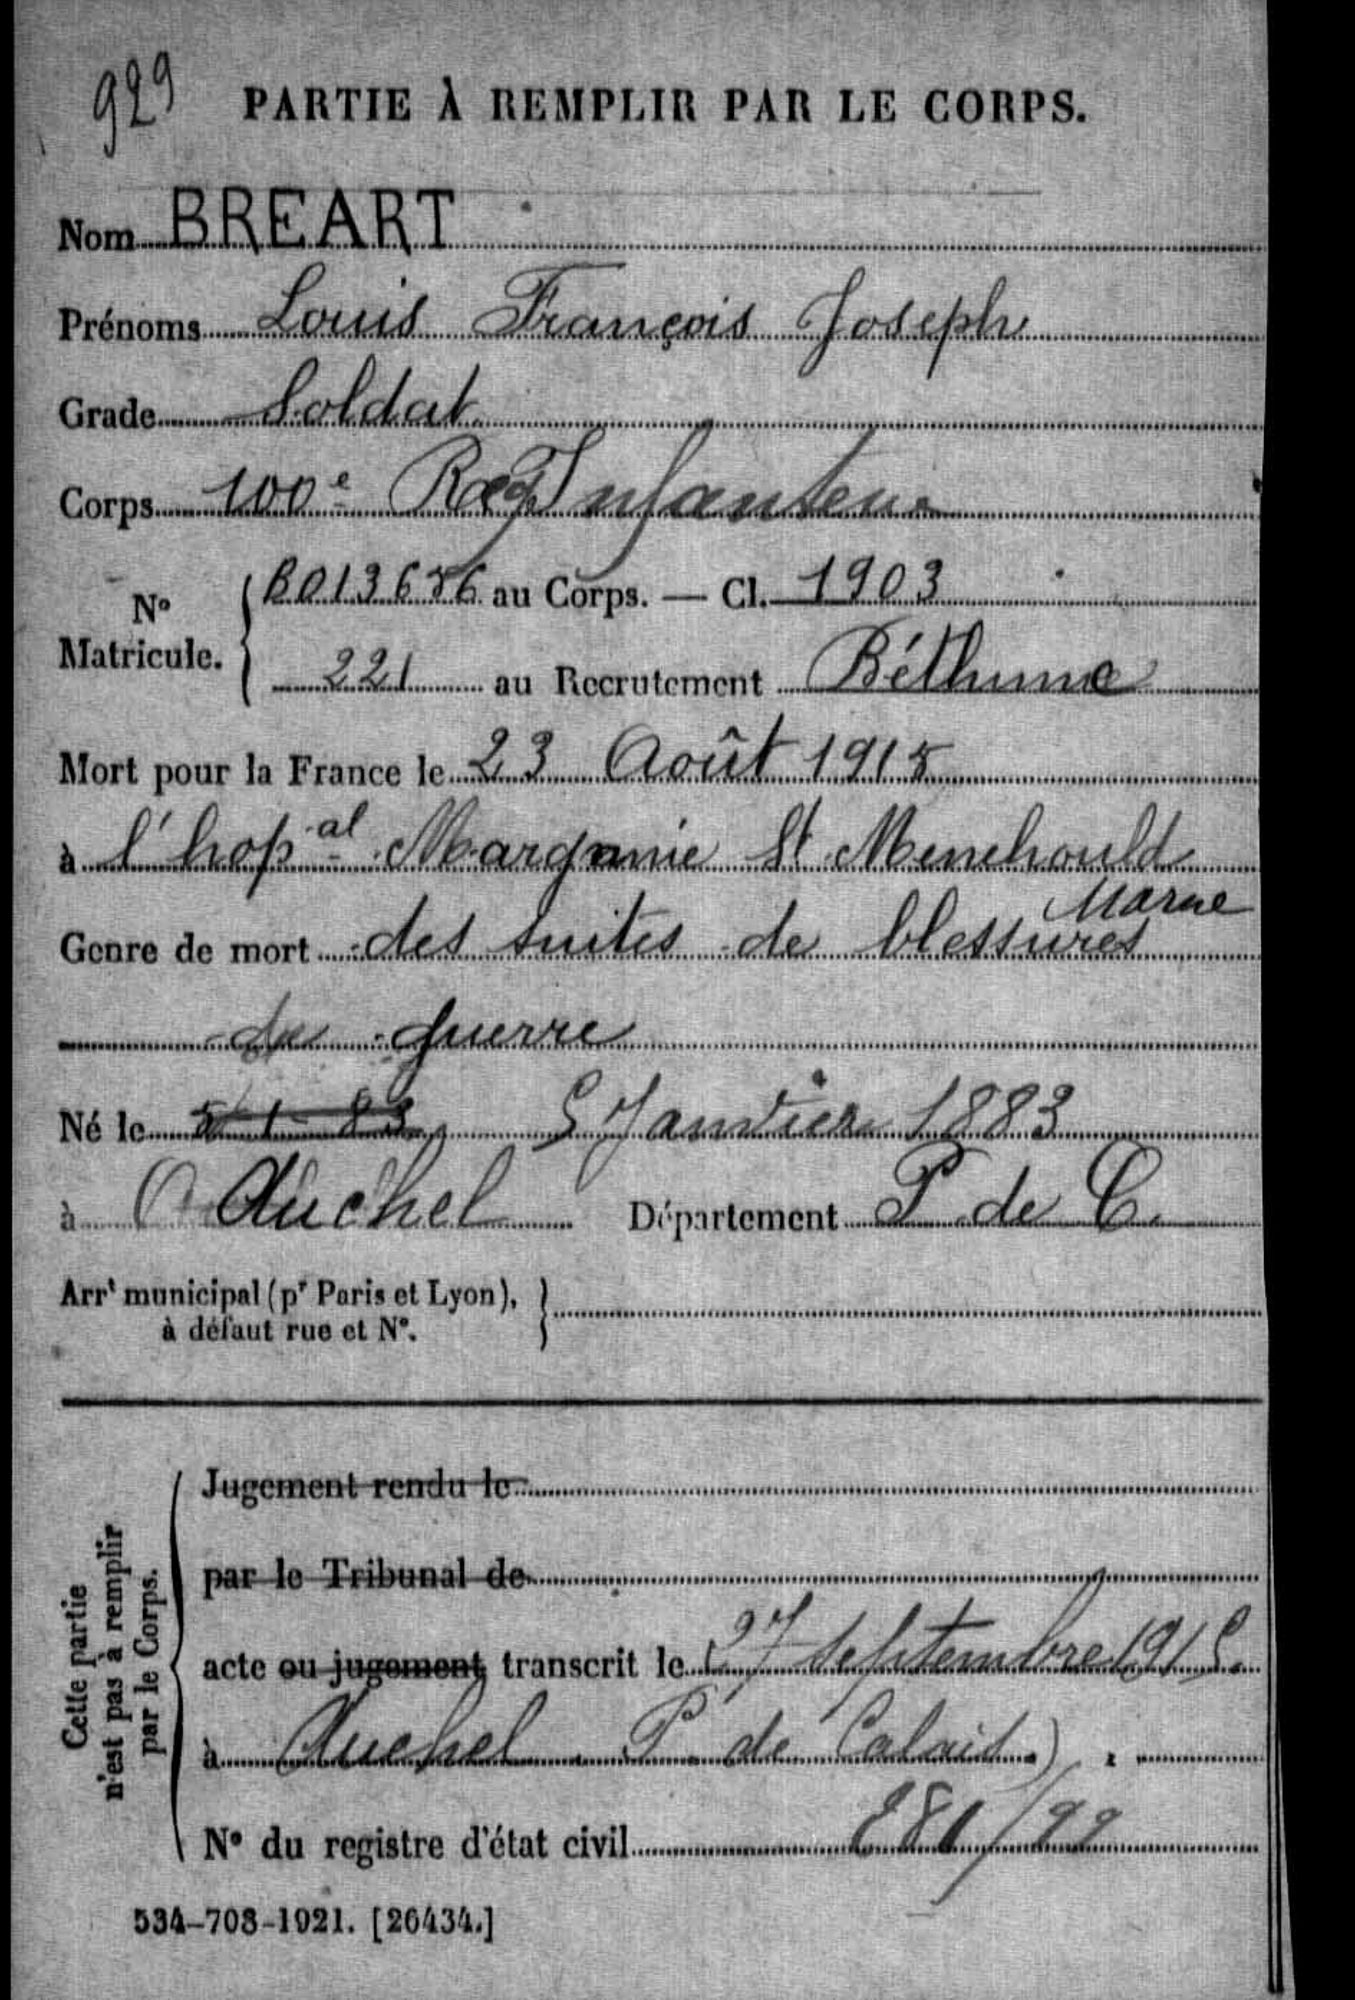 929
PARTIE À REMPLIR PAR LE CORPS.
Nom BREART
Prénoms Louis François Joseph
Grade Soldat
Corps 100e Rég Infanterie
No Matricule. { B013686 au Corps. — Cl. 1903
221 au Recrutement Béthune
Mort pour la France le 23 Août 1915
à l'hopal St Menehould
Marne
Genre de mort des suites de blessures
de guerre
Né le 5-1-83 5 Janvier 1883
à Auchel Département P de C.
Arrt municipal (pr Paris et Lyon), }
à défaut rue et No.
Cette partie
n'est pas à remplir
par le Corps.
Jugement rendu le
par le Tribunal de
acte ou jugement transcrit le 27 septembre 1915
à Auchel P. de Calais)
No du registre d'état civil
534-708-1921. [26434.]